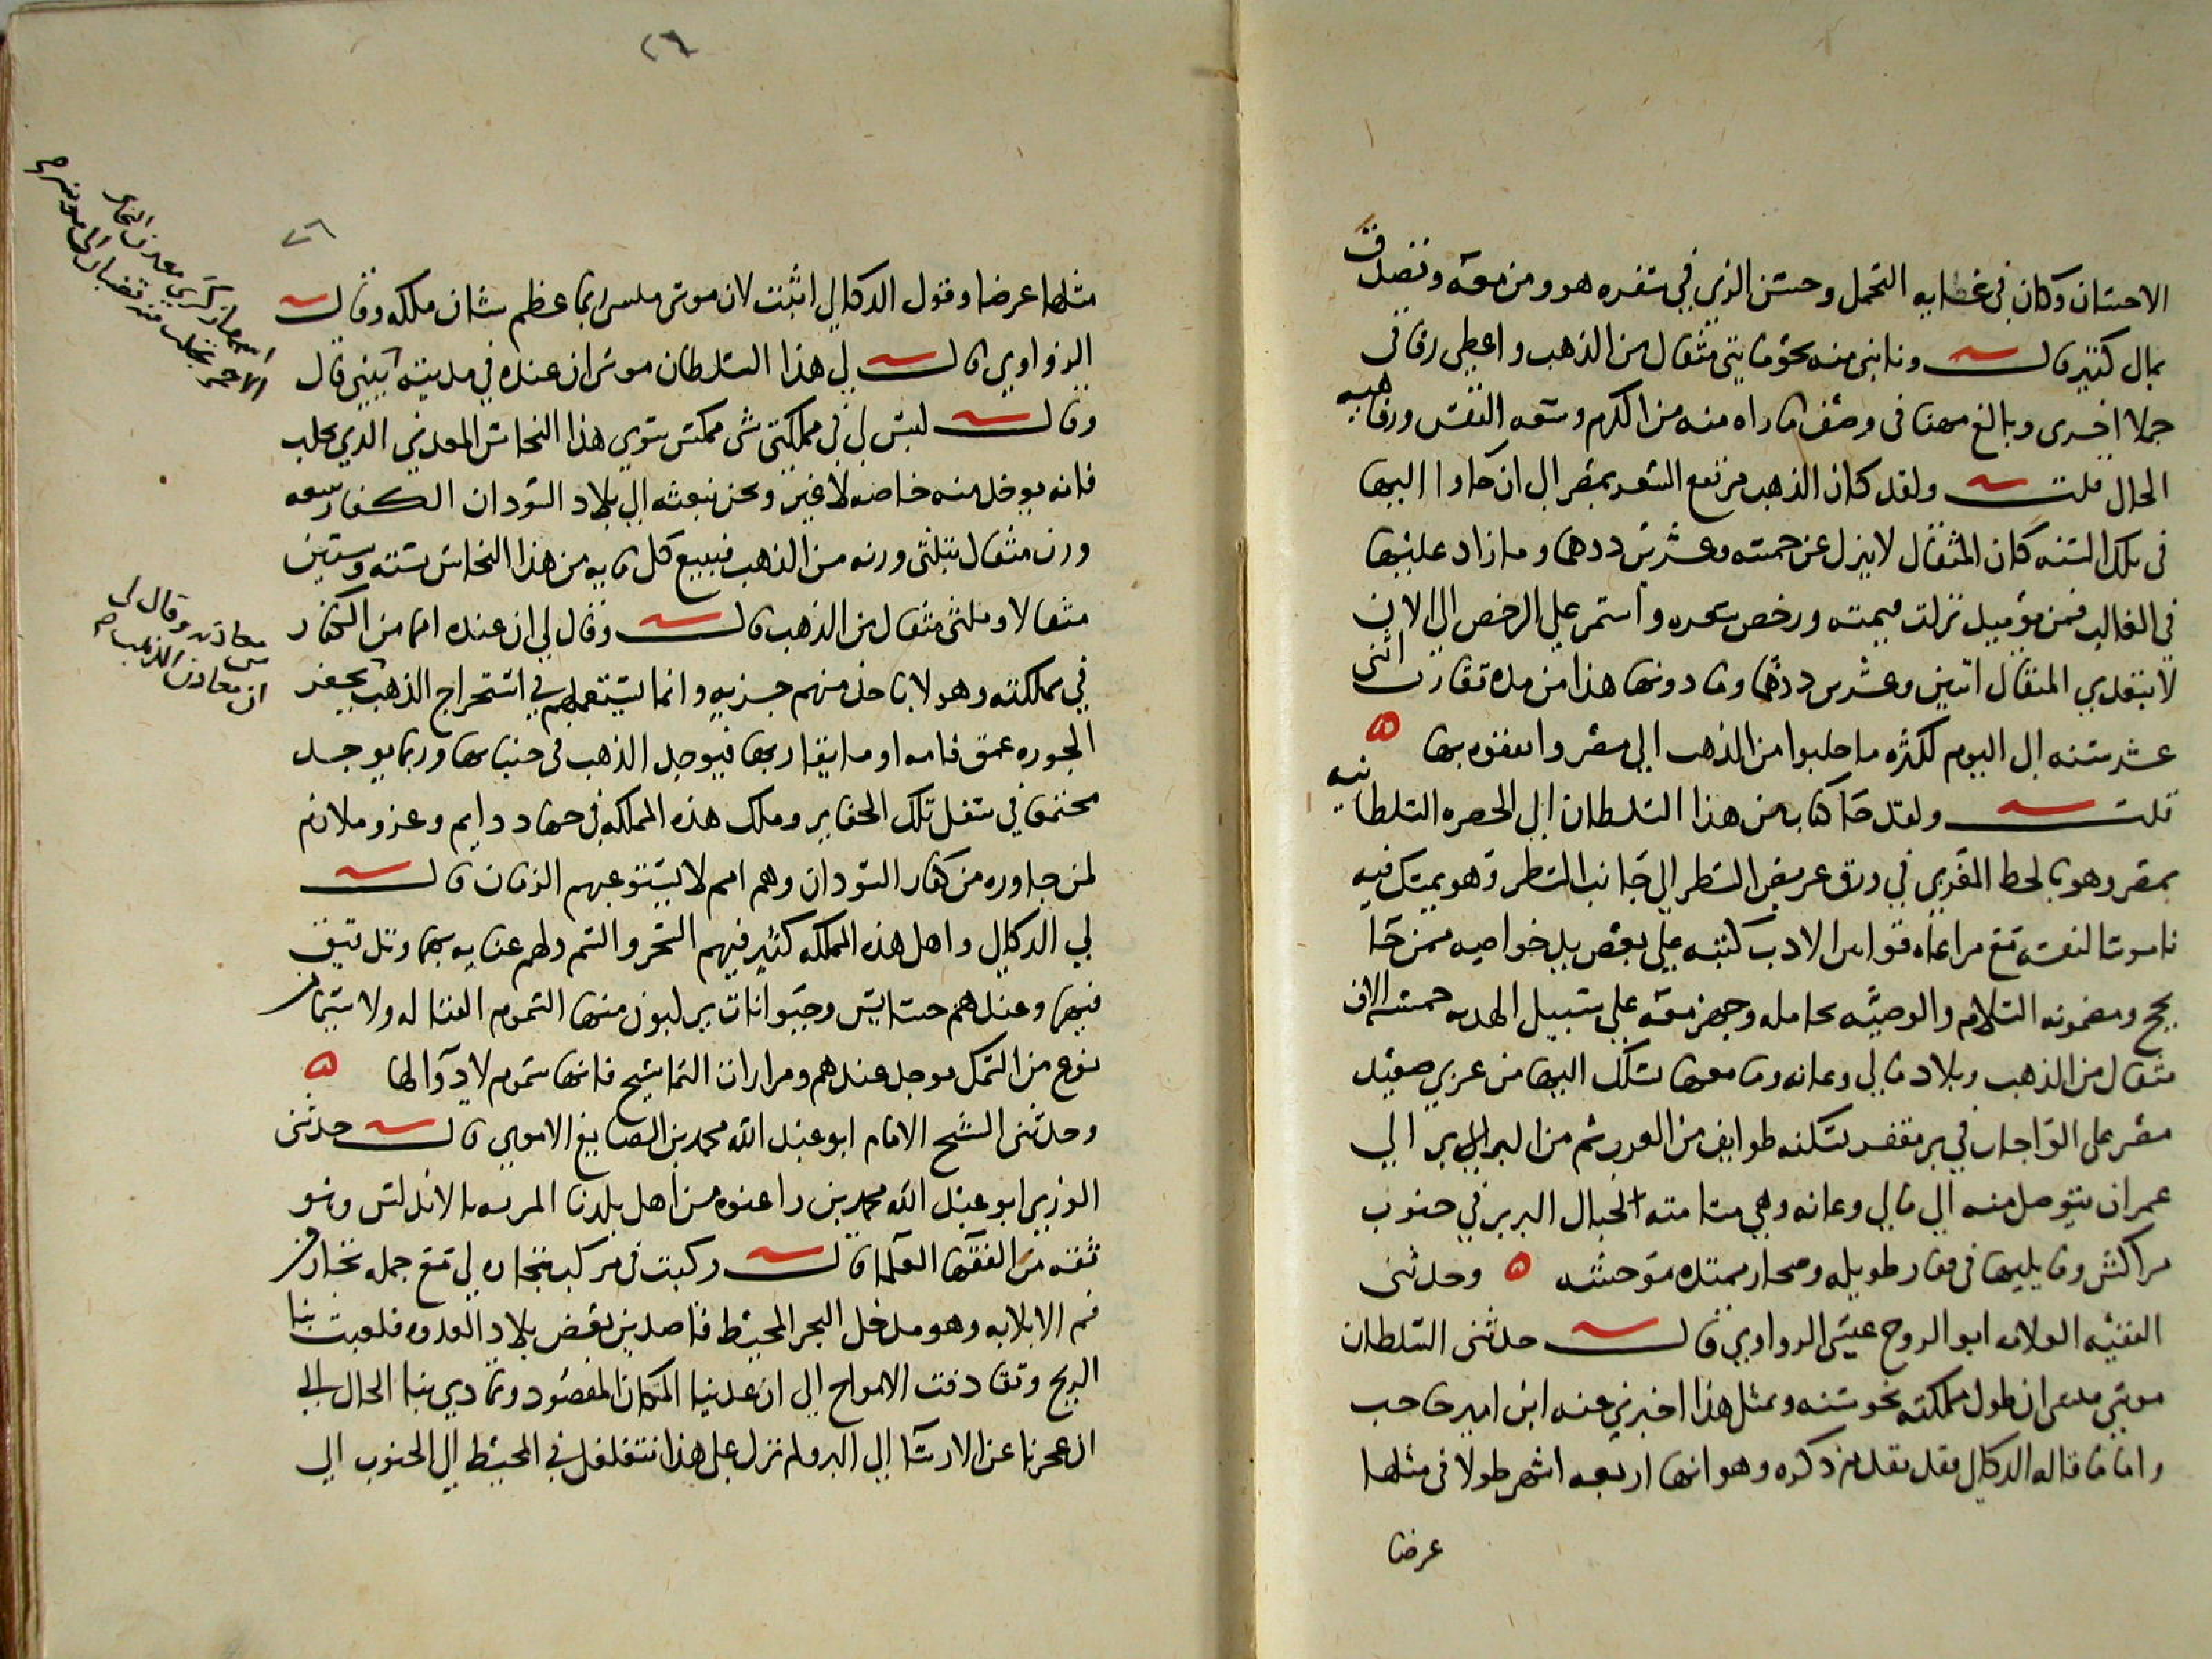 الاحسان وكان في غطايه التجمل وحسن الزي في سفره هو ومن معه وتصدق
بمال كثير قال ونابني منه نحو مايتي مثقال من الذهب واعطي رفاقي
جملا اخرى وبالغ مهنا في وصف ما راه منه من الكرم وسعه النفس ورفاهيه
الحال قلت ولقد كان الذهب مرتفع السعر بمصر الى ان جاوا اليها
في تلك السنه كان المثقال لا ينزل عن خمسه وعشرين درهما وما زاد عليها
في الغالب فمن يوميد نزلت قيمته ورخص سعره واستمر على الرخص الى الان
لا يتعدي المثقال اثنين وعشرين درهما وما دونها هذا من مده تقارب اثنى
عشر سنه الى اليوم لكثره ما جلبوا من الذهب الى مصر وانفقوه بها ه
قلت ولقد جا كتاب من هذا السلطان الى الحضره السلطانيه
بمصر وهو بالخط المغربي في ورق عريض السطر الى جانب السطر وهو يمسك فيه
ناموسا لنفسه مع مراعاه قوانين الادب كتبه على يد بعض خواصه ممن جا
يحج ومضمونه السلام والوصيه بحامله وجهز معه على سبيل الهديه خمسه الاف
مثقال من الذهب وبلاد مالي وغانه وما معها يسلك اليها من غربي صعيد
مصر على الواحات في بر مقفر يسكنه طوايف من العرب ثم من البربر الي
عمران يتوصل منه الي مالي وغانه وهي مسامته لجبال البربر في جنوب
مراكش وما يليها في قفار طويله وصحار ممتده موحشه ه وحدثني
الفقيه العلامه ابو الروح عيسى الزواوي قال حدثني السلطان
موسي منسى ان طول مملكته نحو سنه وبمثل هذا اخبرني عنه ابن امير حاجب
واما ما قاله الدكالي فقد تقدم ذكره وهو انها اربعه اشهر طولا في مثلها
عرضا
٢٦
٢٦
مثلها عرضا وقول الدكالي اثبت لان موسى منسى ربما عظم شان ملكه وقال
الزواوي قال لي هذا السلطان موسى ان عنده في مدينته قال
وقال ليس لي في مملكتي شي ممكس سوي هذا النحاس المعدني الذي يجلب
فانه يوخذ منه خاصه لا غير ونحن نبعثه الي بلاد السودان الكفار نبيعه
وزن مثقال بثلثي وزنه من الذهب فنبيع كل مايه من هذا النحاس بسته وستين
مثقالا وثلثي مثقال من الذهب قال وقال لي ان عنده امما من الكفار
في مملكته وهو لا ياخذ منهم جزيه وانما يستعملهم في استخراج الذهب بحفر
الجوره عمق قامه او ما يقاربها فيوجد الذهب في جنباتها وربما يوجد
مجتمعا في سفل تلك الحفاير وملك هذه المملكه في جهاد دايم وغزو ملازم
لمن جاوره من كفار السودان وهم امم لا يستوعبهم الزمان قال
لي الدكالي واهل هذه المملكه كثير فيهم السحر والسم ولهم عنايه بهما وتدقيق
فيها وعندهم حشايش وحيوانات يركبون منها السموم القتاله ولا سيما من
نوع من السمك يوجد عندهم ومرارات التماسيح فانها سموم لا دوآ لها ه
وحدثني الشيخ الامام ابو عبد الله محمد بن الصايغ الاموي قال حدثني
الوزير ابو عبد الله محمد بن زاغنوه من اهل بلدنا المريه بالاندلس وهو
ثقه من الفقها العلما قال ركبت في مركب بتجاره لي مع جمله تجار من
فم الابلايه وهو مدخل البحر المحيط قاصدين بعض بلاد العدوه فلعبت بنا
الريح وتقاذفت الامواج الي ان عدينا المكان المقصود وتمادي بنا الحال الى
ان عجزنا عن الارسآ الي البر ولم نزل على هذا نتغلغل في المحيط الي الجنوب الي
الاحمر
معادنه وقال لي
ان معادن الذهب